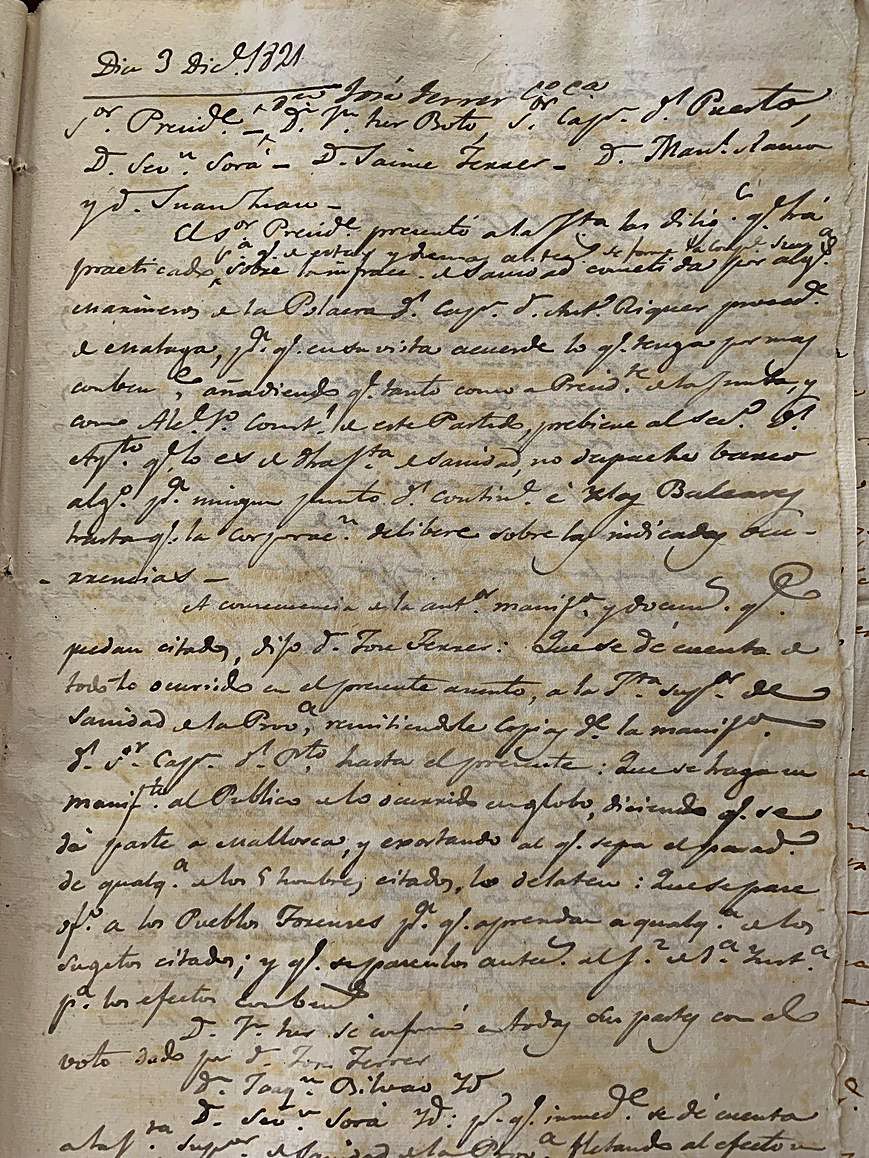 Dia 3 Dic.e 1821
D.n José Ferrer
S.or Presid.e - D. J.n Boto, S.or Cap.n d.l Puerto,
D. Sev.n Sorá - D. Jaime Ferrer - D. Man.l
y D. Juan
El S.or Presid.e presentó a la J.ta las dilig.s q.e há
practicado, sobre la infracc.n de sanidad cometida por alg.s
Marineros de la Polacra d.l Cap.n D. Ant.o Riquer proced.e
de Malaga, p.a q.e en su vista acuerde lo q.e tenga por mas
conben.te, añadiendo q.e tanto como a Presid.te de la Junta, y
como Alc.e p.o Const.l de este Partido, prebiene al Sec.o d.l
Ay.to q.e lo es de dha J.ta de sanidad, no despache barco
alg.o p.a ningun punto d.l contin.e é Yslas Baleares
hasta q.e la corporac.n delibere sobre las indicadas ocu-
rrencias -
A consecuencia de la ant.or manif.n y docum.s q.e
quedan citados, dijo D. Jose Ferrer: Que se dé cuenta de
todo lo ocurrido en el presente asunto, a la J.ta sup.or de
Sanidad de la Prov.a, remitiendole Copias de la manif.n
d.l S.r Cap.n d.l P.to hasta el presente: Que se haga un
manif.to al Publico de lo ocurrido en globo, diciendo q.e se
dá parte a Mallorca, y exortando al q.e sepa el parad.o
de qualq.a de los 5 hombres citados, lo delaten: Que se pase
of.o a los Pueblos Forenses p.a q.e aprendan a qualq.a de los
sugetos citados; y q.e se pasen los autos al J.z de 1.a Ynst.a
p.a los efectos conben.s
D. J.n se conformó en todas sus partes con el
voto dado por D. Jose Ferrer
D. Joaq.n Bilvao Yd
D. Sev.n Sorá Yd: p.o q.e inmed.te se dé cuenta
a la J.ta sup.or de Sanidad de la Prov.a fletando al efecto un